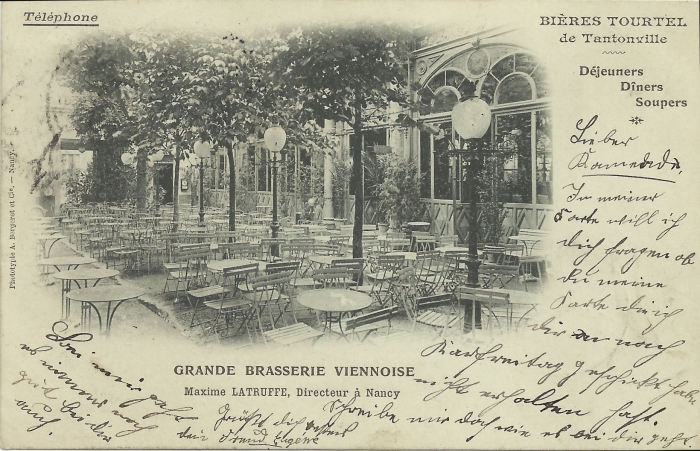 Téléphone
BIÈRES TOURTEL
de Tantonville
Déjeuners
Dîners
Soupers
Phototypie A. Bergeret et Cie. — Nancy.
GRANDE BRASSERIE VIENNOISE
Maxime LATRUFFE, Directeur à Nancy
Lieber
Kamerade,
In meiner
Karte will ich
dich fragen ob
du meine
Karte die ich
dir nach
Karfreitag geschickt habe
nicht erhalten hast.
Schreibe mir doch wie es bei dir geht.
Bei mir geht
es immer noch
gut bei dir
auch.
Grüßt dich bestens
dein Freund Eugène